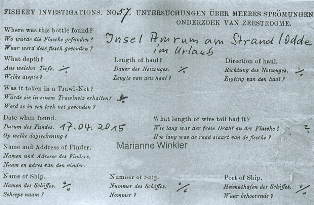 FISHERY INVESTIGATIONS. No 57. UNTERSUCHUNGEN ÜBER MEERES STRÖMUNGEN
ONDERZOEK VAN ZEESTROOMEN.
Where was this bottle found?
Wo wurde die Flasche gefunden?
Waar werd deze flesch gevonden?
Insel Amrum am Strand / Odde
im Urlaub
What depth?
Aus welcher Tiefe.
Welke diepte?
Length of haul?
Dauer des Netzzuges.
Lengte van den haal?
Direction of haul.
Richtung des Netzzuges.
Rigting van den haal?
Was it taken in a Trawl-Net?
Wurde sie in einem Trawlnetz erhalten?
Werd ze in een treil net gevonden?
Date when found.
Datum des Fundes.
17.04.2015
Op welke dagteekening?
What length of wire tail had it?
Wie lang war der freie Draht an der Flasche?
Name and Address of Finder.
Namen und Adresse des Finders.
Naam en adres van den vinder.
Marianne Winkler
Name of Ship.
Namen des Schiffes.
Scheeps naam?
Number of Ship.
Nummer des Schiffes.
Nommer?
Port of Ship.
Heimathafen des Schiffes?
Waar behoorende?